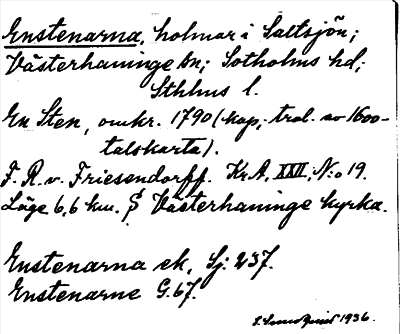 Enstenarna, holmar i Saltsjön;
Västerhaninge sn; Sotholms hd;
Sthlms l.
En Sten, omkr. 1790 (kop, trol. av 1600-
talskarta).
F. R. v. Friesendorff. Kr.A. XXII, N:o 19.
Läge 6,6 km. Västerhaninge kyrka.
Enstenarna ek, Sj: 237.
Enstenarne G.67.
1936.